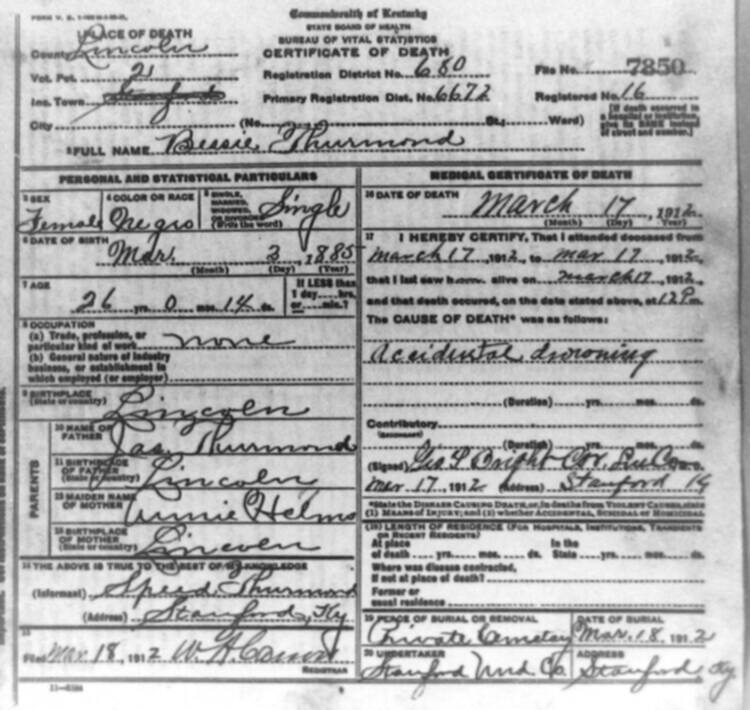 FORM V. S.
Commonwealth of Kentucky
STATE BOARD OF HEALTH
BUREAU OF VITAL STATISTICS
CERTIFICATE OF DEATH
1 PLACE OF DEATH
County Lincoln
Vot. Pct. 21
Inc. Town Stanford
City (No. St.; Ward)
Registration District No. 680
Primary Registration Dist. No. 6672
File No. 7850
Registered No. 16
[If death occurred in
a hospital or institution,
give its NAME instead
of street and number.]
2 FULL NAME Bessie Thurmond
PERSONAL AND STATISTICAL PARTICULARS
3 SEX
Female
4 COLOR OR RACE
Negro
5 SINGLE,
MARRIED,
WIDOWED,
OR DIVORCED
(Write the word)
Single
6 DATE OF BIRTH
Mar. 3, 1885
(Month) (Day) (Year)
7 AGE
26 yrs. 0 mos. 14 ds.
If LESS than
1 day.....hrs.
or.....min.?
8 OCCUPATION
(a) Trade, profession, or
particular kind of work none
(b) General nature of industry
business, or establishment in
which employed (or employer)
9 BIRTHPLACE
(State or country) Lincoln
PARENTS
10 NAME OF
FATHER Jas Thurmond
11 BIRTHPLACE
OF FATHER
(State or country) Lincoln
12 MAIDEN NAME
OF MOTHER Annie Helms
13 BIRTHPLACE
OF MOTHER
(State or country) Lincoln
14 THE ABOVE IS TRUE TO THE BEST OF MY KNOWLEDGE
(Informant) Speed Thurmond
(Address) Stanford, Ky
15
Filed Mar. 18, 1912
REGISTRAR
MEDICAL CERTIFICATE OF DEATH
16 DATE OF DEATH
March 17, 1912
(Month) (Day) (Year)
17 I HEREBY CERTIFY, That I attended deceased from
March 17, 1912, to Mar 17, 1912,
that I last saw h alive on March 17, 1912,
and that death occured, on the date stated above, at 12 P m.
The CAUSE OF DEATH* was as follows:
Accidental drowning
(Duration) yrs. mos. ds.
Contributory
(SECONDARY)
(Duration) yrs. mos. ds.
(Signed) Geo P Bright Cor.
Mar. 17, 1912 (Address) Stanford Ky
*State the DISEASE CAUSING DEATH, or, in deaths from VIOLENT CAUSES, state
(1) MEANS OF INJURY; and (2) whether ACCIDENTAL, SUICIDAL or HOMICIDAL
(18) LENGTH OF RESIDENCE (FOR HOSPITALS, INSTITUTIONS, TRANSIENTS
OR RECENT RESIDENTS)
At place
of death yrs. mos. ds.
In the
State yrs. mos. ds.
Where was disease contracted,
If not at place of death?
Former or
usual residence
19 PLACE OF BURIAL OR REMOVAL
Private Cemetary
DATE OF BURIAL
Mar. 18, 1912
20 UNDERTAKER
Stanford Und Co
ADDRESS
Stanford Ky.